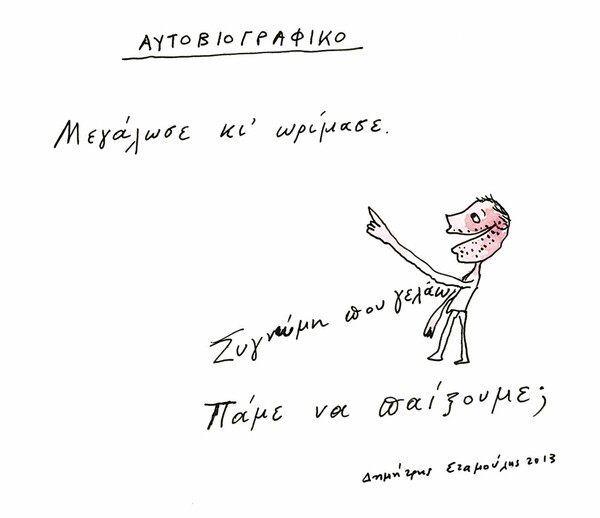 ΑΥΤΟΒΙΟΓΡΑΦΙΚΟ
Μεγάλωσε κι' ωρίμασε.
Συγνώμη που γελάω
Πάμε να παίξουμε;
Δημήτρης Σταμούλης 2013